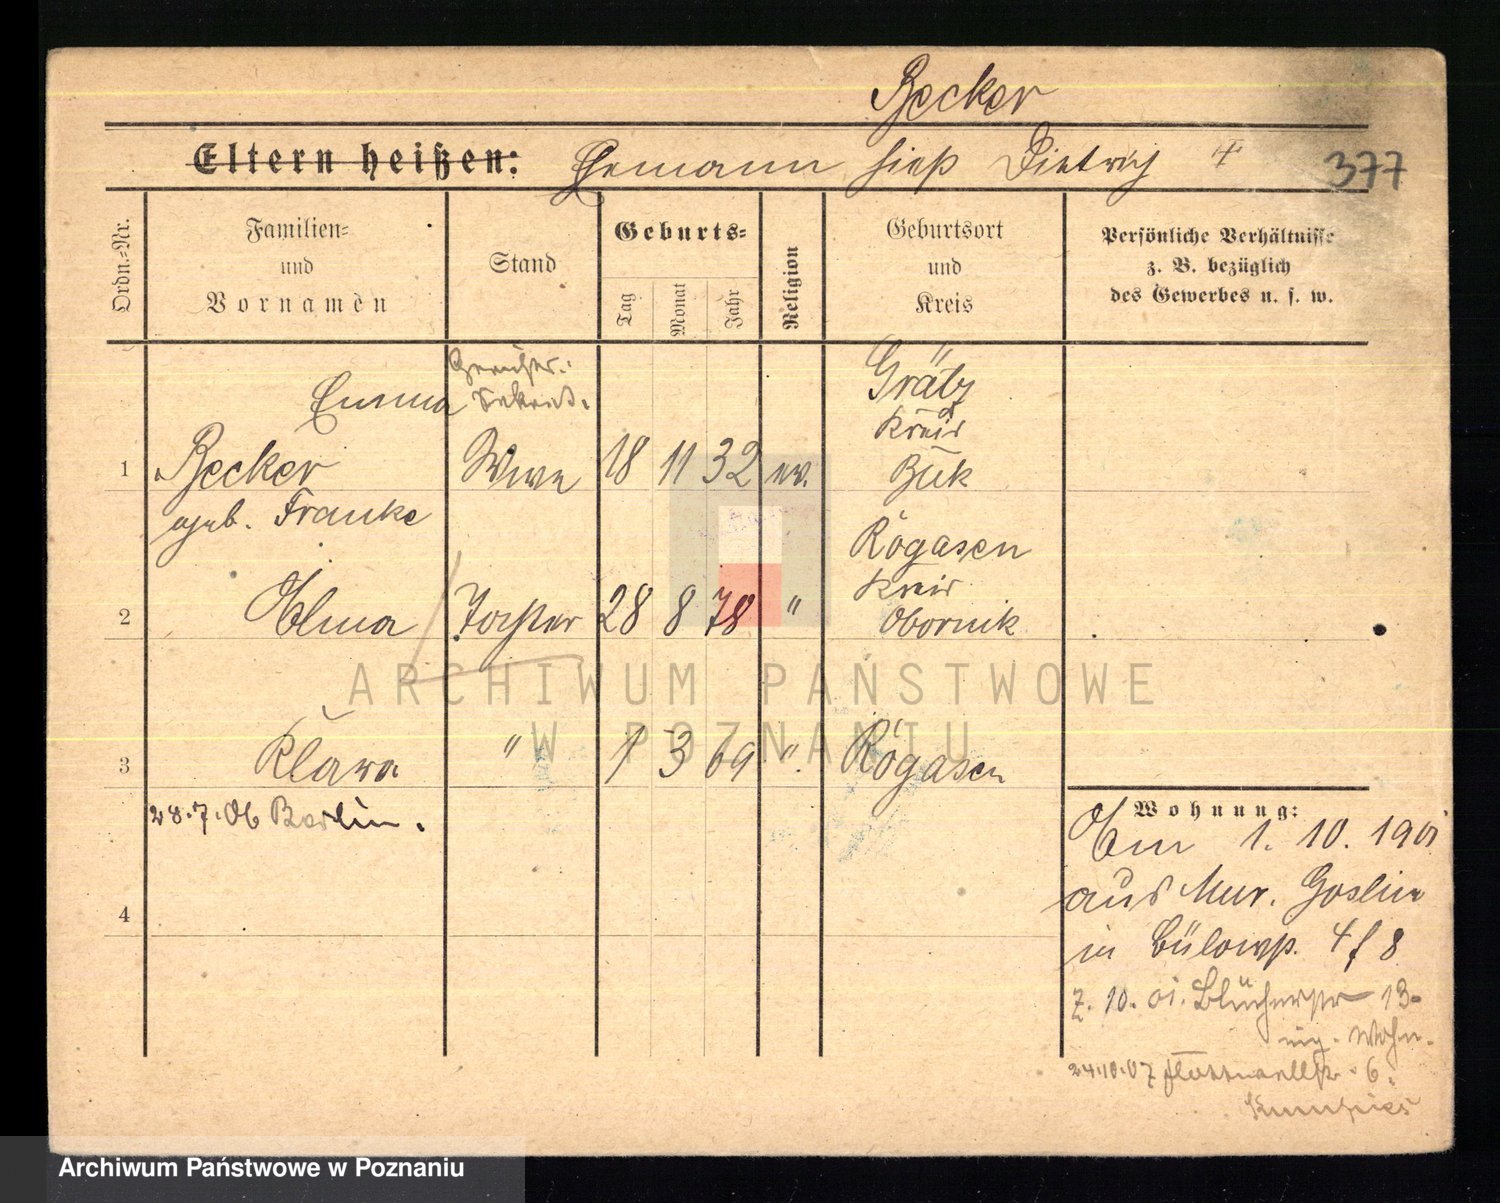 Becker
Eltern heißen: Ehemann hieß Dietrich † 377
Ordn.-Nr.
Familien-
und
Vornamen
Stand
Geburts-
Tag
Monat
Jahr
Religion
Geburtsort
und
Kreis
Persönliche Verhältnisse
z. B. bezüglich
des Gewerbes u. s. w.
Emma
1 Becker Wwe 18 11 32 ev.
geb. Franke
Grätz
Kreis
Buk
2 Elma Tochter 28 8 78 "
Rogasen
Kreis
Obornik
3 Klara " 1 3 69 " Rogasen
28.7.06 Berlin.
4
Wohnung:
Am 1. 10. 1901
aus Mur. Goslin
in Bülowstr. 4 f 8
2. 10. 01. Blücherstr 13
eig. Wohn.
24.10.07 Flottwellstr. 6.
ARCHIWUM PAŃSTWOWE
W POZNANIU
Archiwum Państwowe w Poznaniu